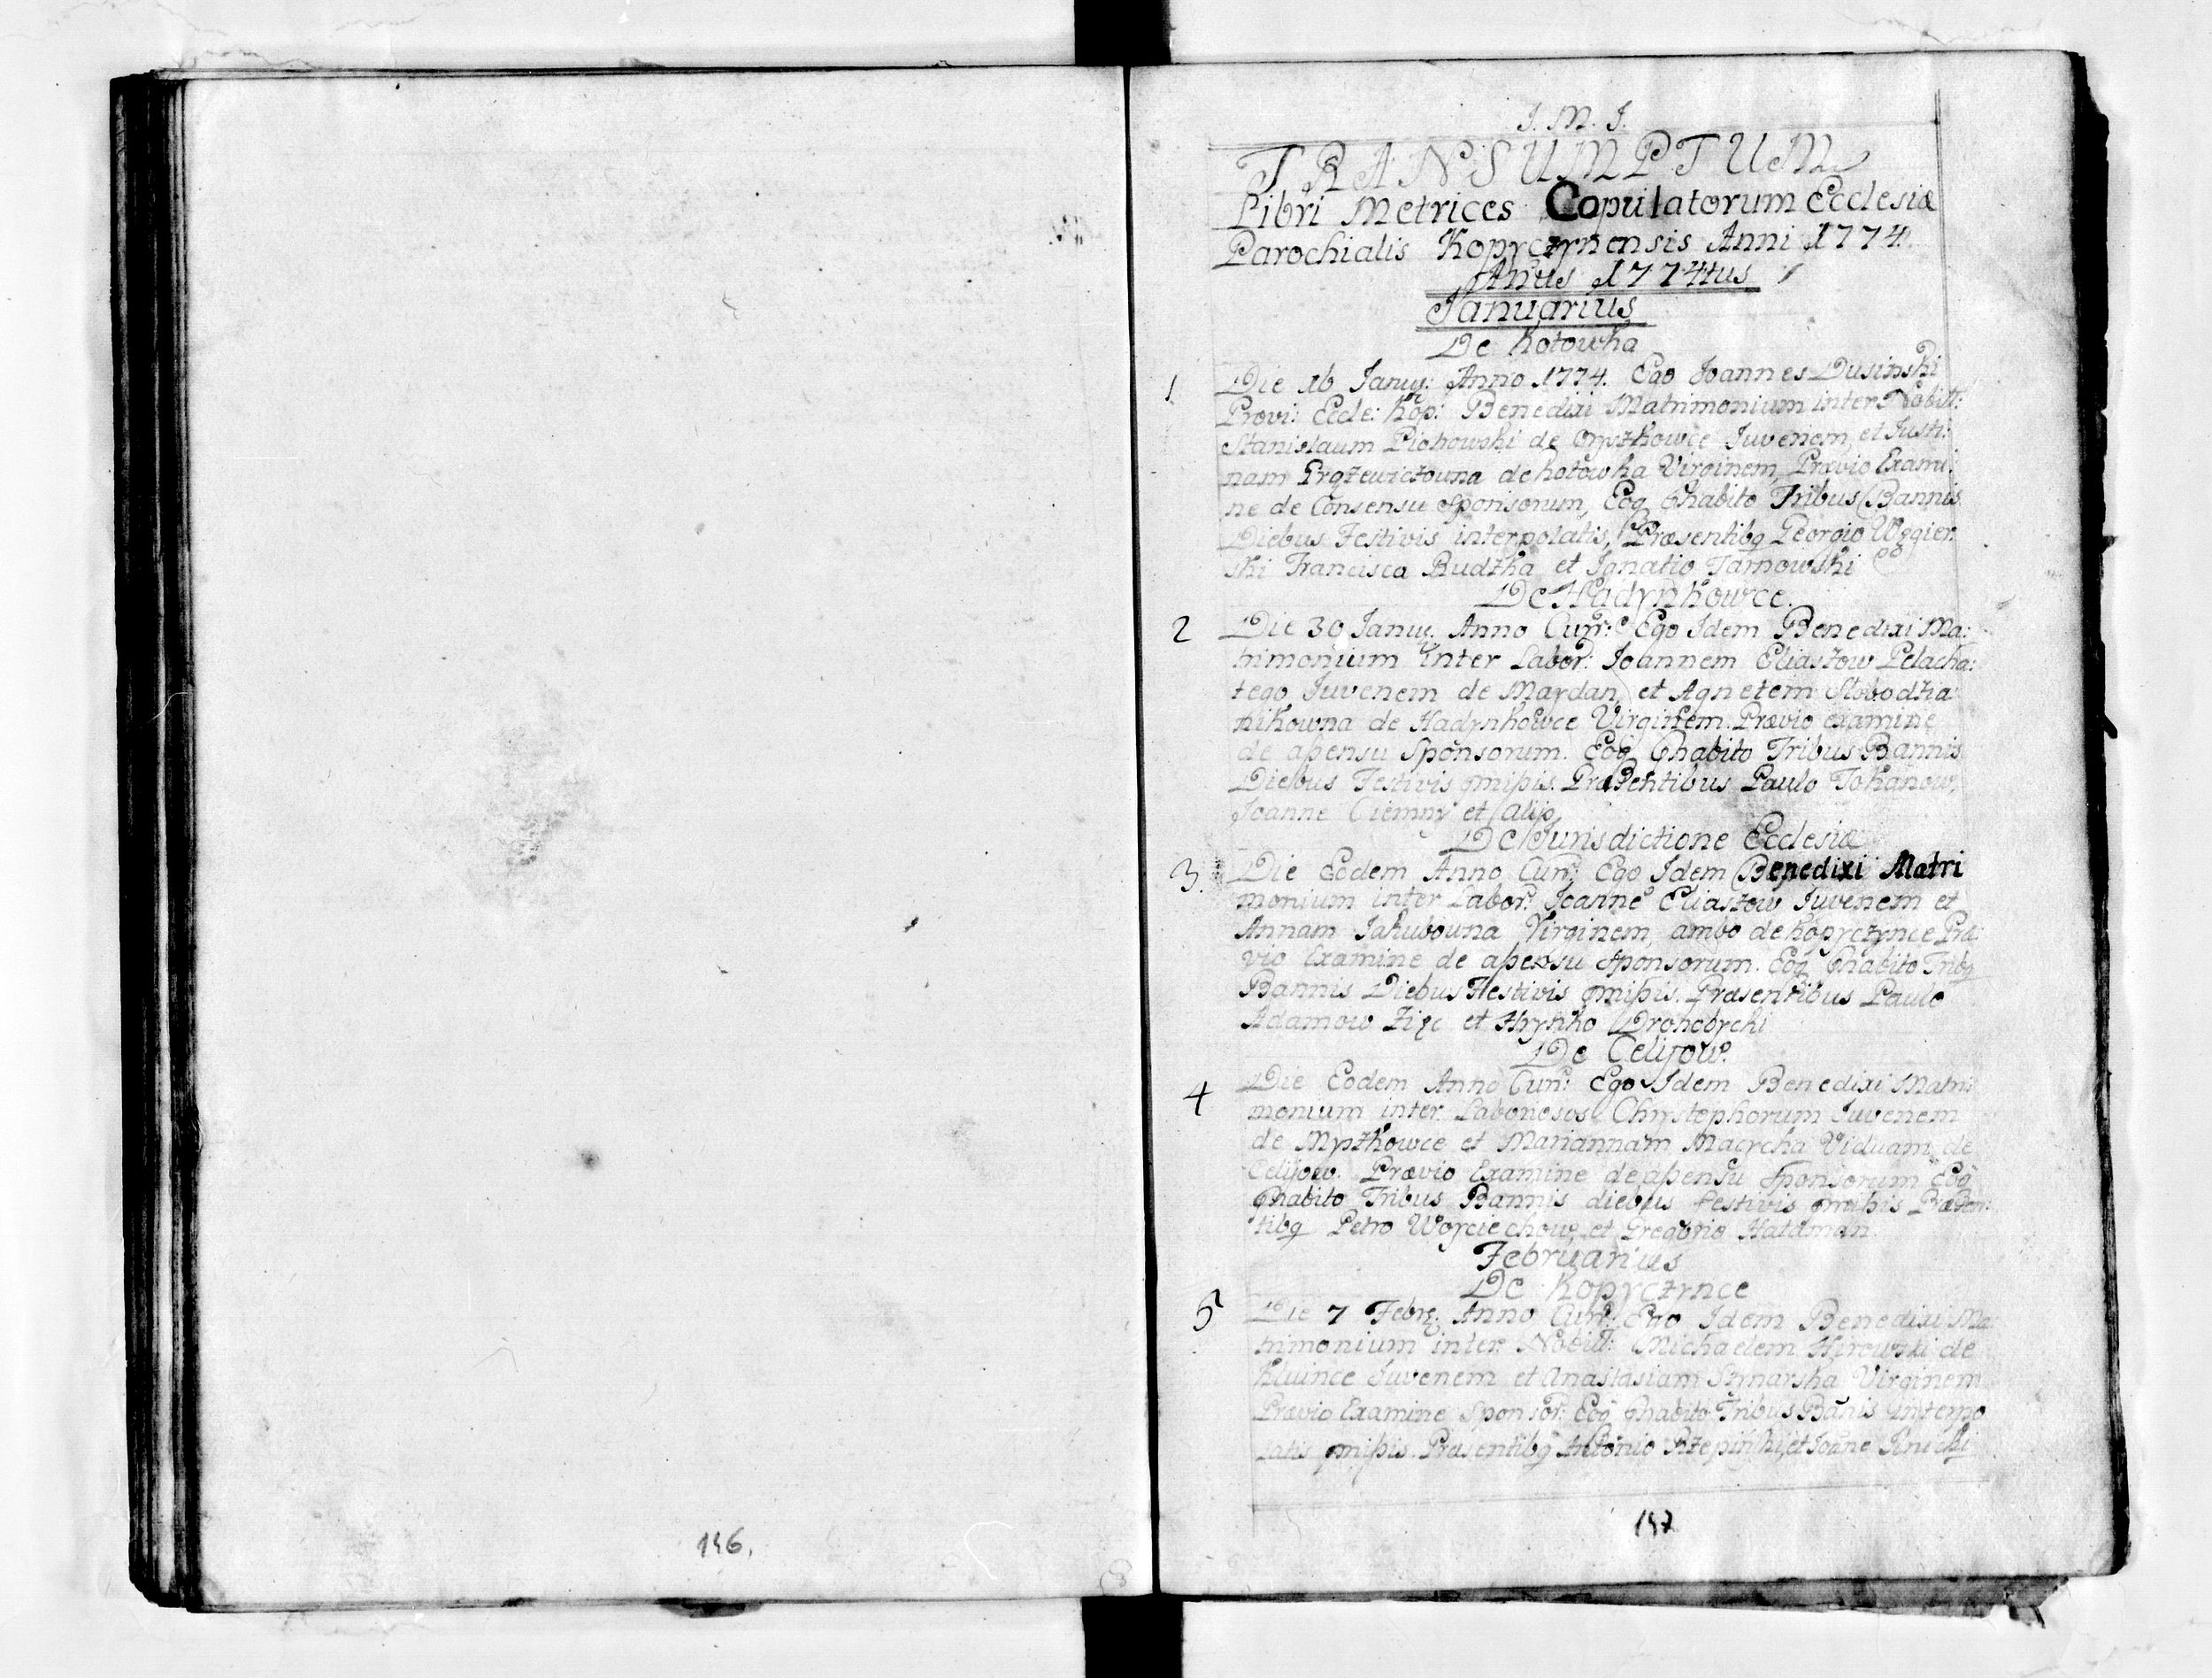 J. M. J.
TRANSUMPTUM
Libri Metrices Copulatorum Ecclesiæ
Parochialis Kopyczynensis Anni 1774.
Anus 1774tus
Januarius
De Kotowka
1 Die 16 Januy: Anno 1774. Ego Joannes Dusinski
Provi: Eccle: Kop: Benedixi Matrimonium inter Nobill:
Stanislaum Piotrowski de Oryszkowce Juvenem, et Justi:
nam de Kotowka Virginem, Prævio Exami:
ne de Consensu Sponsorum, Eoq Phabito Tribus Bannis
Diebus Festivis interpolatis, Præsentibq Georgio Węgier
ski Francisca Rudzka et Ignatio Tarnowski
De Hadynkowce.
2 Die 30 Januy. Anno Curr: Ego Idem Benedixi Ma:
trimonium inter Labor: Joannem Eliaszow Pelacha:
tego Juvenem de Maydan, et Agnetem Slobodzia
nikowna de Hadynkowce Virginem. Prævio examine
de assensu Sponsorum. Eoq Phabito Tribus Bannis
Diebus Festivis pmissis. Præsentibus Paulo Tokanow,
Joanne Ciemny et Alijs
De Jurisdictione Ecclesiæ
3. Die Eodem Anno Curr: Ego Idem Benedixi Matri
monium inter Labor: Joanne Eliaszow Juvenem et
Annam Jakubouna Virginem, ambo de Kopyczynce Præ:
vio Examine de assensu Sponsorum. Eoq Phabito Tribq
Bannis Diebus Festivis pmissis. Præsentibus Paulo
Adamow Zięc et Hrynko Drohobycki
De Celijow.
4 Die Eodem Anno Curr: Ego Idem Benedixi Matri:
monium inter Laboriosos Chrystophorum Juvenem
de Myszkowce et Mariannam Macycha Viduam de
Celijow. Prævio Examine de assensu Sponsorum Eoq
Phabito Tribus Bannis diebus festivis pmissis Præsen:
tibq Petro Woyciechow, et Gregorio Hataman
Februarius
De Kopyczynce
5 Die 7 Febry: Anno Curr: Ego Idem Benedixi Ma:
trimonium inter Nobill: Michaelem de
Kluince Juvenem et Anastasiam Virginem
Prævio Examine Sponsor: Eoq Phabito Tribus Banis interpo
latis pmissis. Præsentibq Antonio Rzepinski, et Joane
146.
147